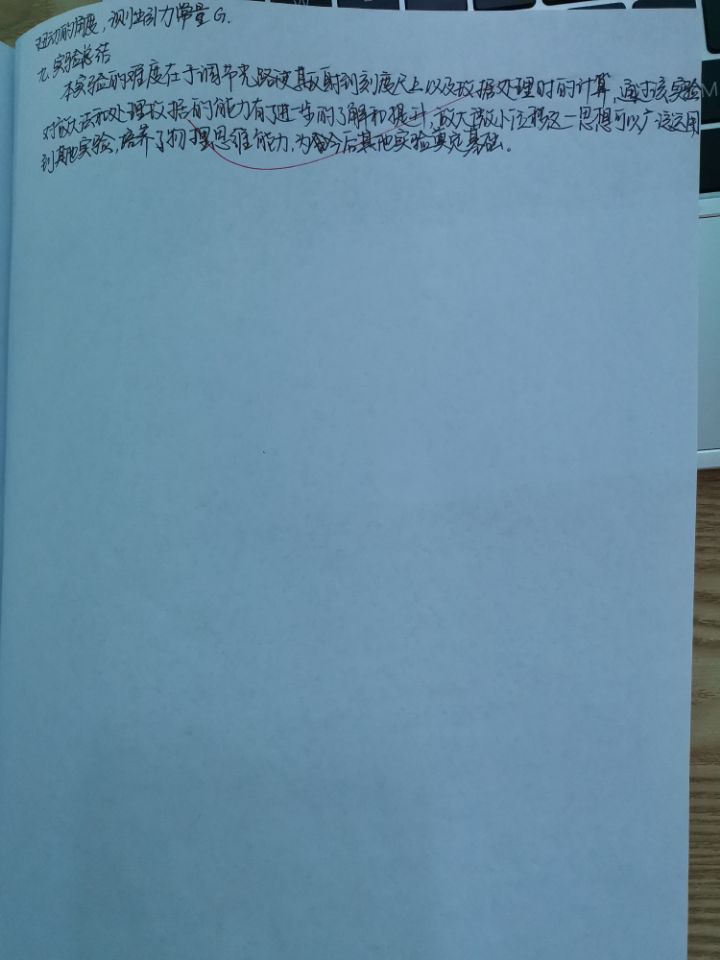 运动的角度，测出引力常量G.
九.实验总结
本实验的难度在于调节光路使其反射到刻度尺上以及数据处理时的计算，通过该实验
对放大法和处理数据的能力有了进一步的了解和提升，放大微小位移这一思想可以广泛运用
到其他实验，培养了物理思维能力，为今后其他实验奠定基础。